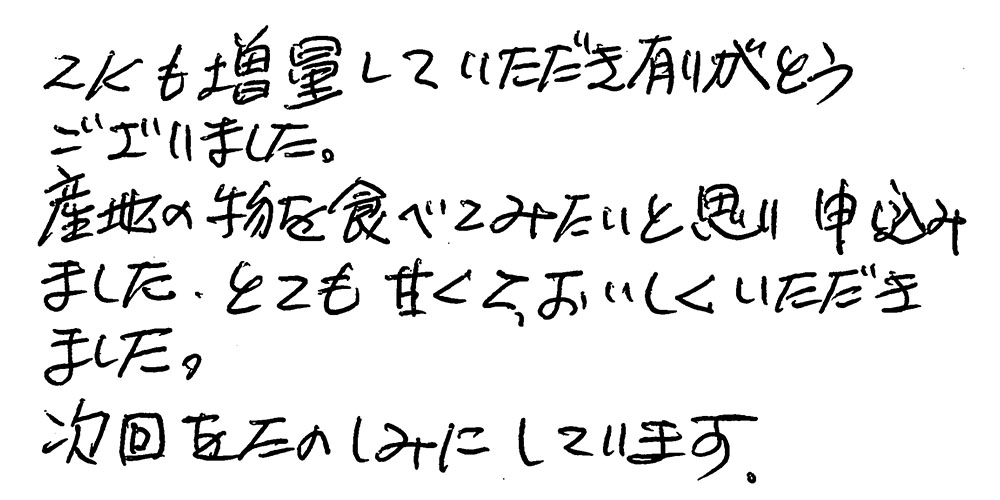 2Kも増量していただき有りがとう
ございました。
産地の物を食べてみたいと思い申込み
ました. とても甘くて、おいしくいただき
ました。
次回をたのしみにしています。